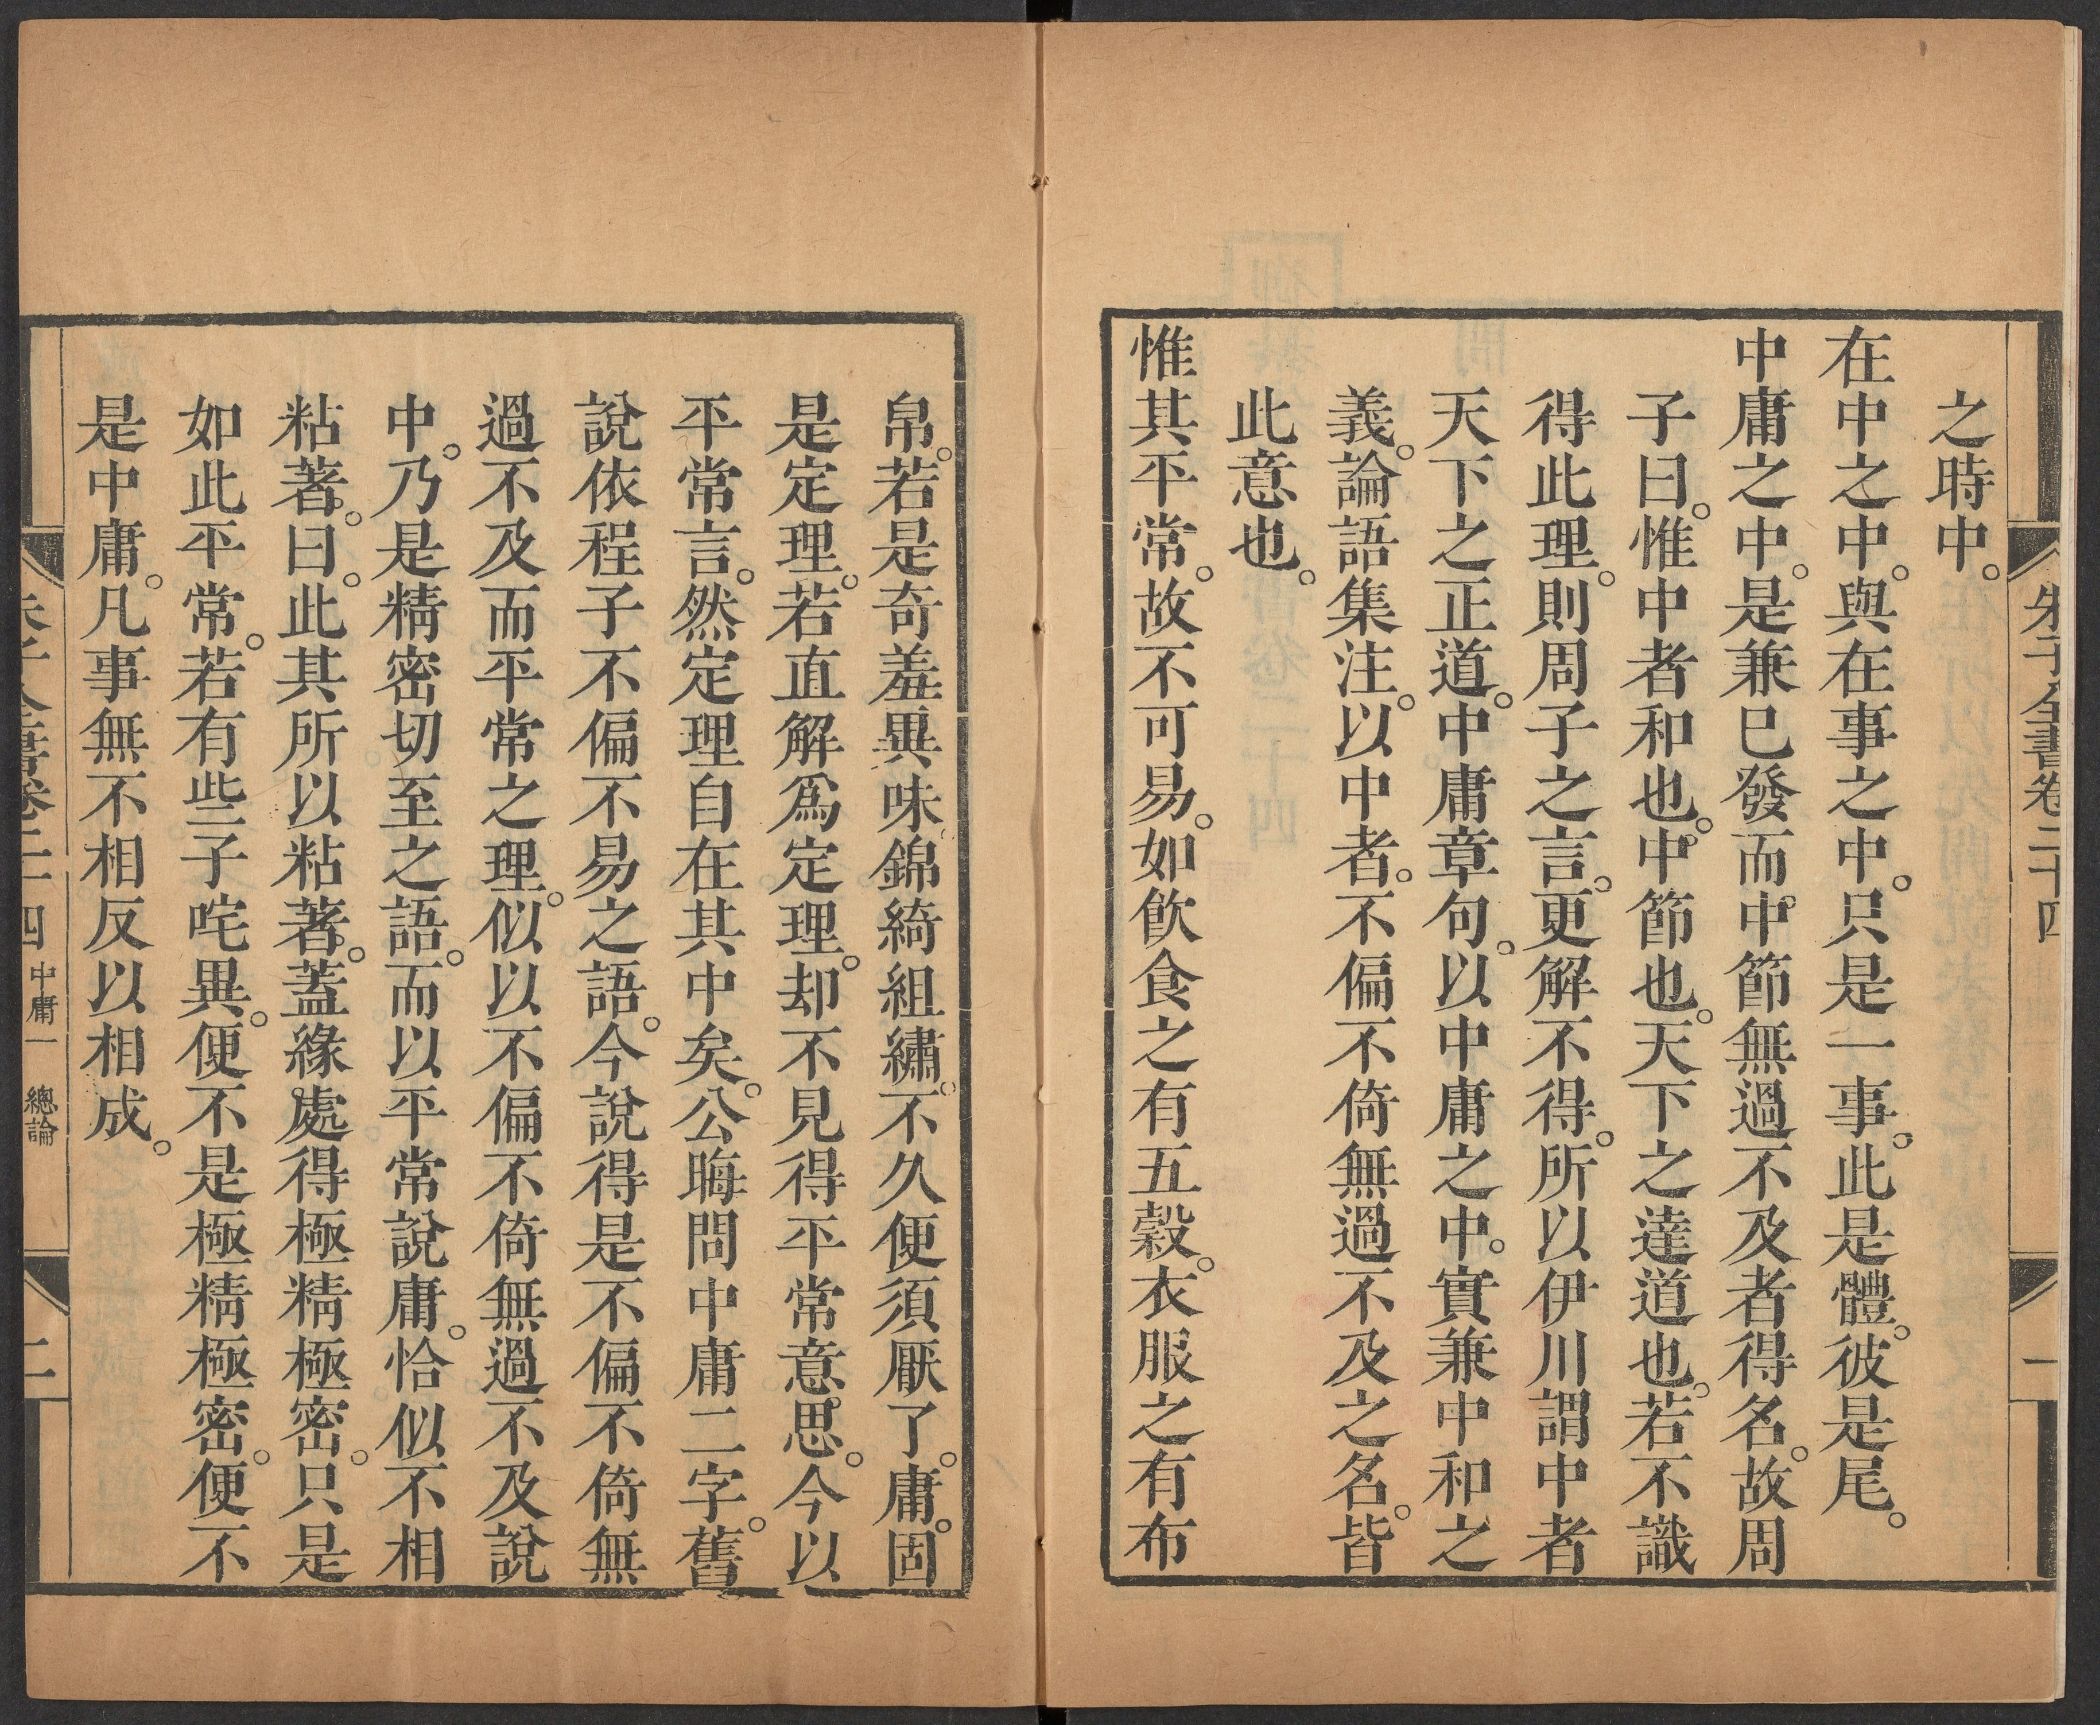 朱子全書卷二十四
一
之時中。
在中之中。與在事之中。只是一事。此是體。彼是尾。
中庸之中。是兼已發而中節無過不及者得名。故周
子曰。惟中者和也。中節也。天下之達道也。若不識
得此理。則周子之言。更解不得。所以伊川謂中者
天下之正道。中庸章句。以中庸之中。實兼中和之
義。論語集注。以中者。不偏不倚無過不及之名。皆
此意也。
惟其平常。故不可易。如飲食之有五穀。衣服之有布
帛。若是奇羞異味錦綺組繡。不久便須厭了。庸。固
是定理。若直解爲定理。却不見得平常意思。今以
平常言。然定理自在其中矣。公晦問中庸二字。舊
說依程子不偏不易之語。今說得是不偏不倚無
過不及而平常之理。似以不偏不倚無過不及說
中。乃是精密切至之語。而以平常說庸。恰似不相
粘著。曰。此其所以粘著。蓋緣處得極精極密。只是
如此平常。若有些子咤異。便不是極精極密。便不
是中庸。凡事無不相反以相成。
朱子全書卷二十四 中庸一 總論
二